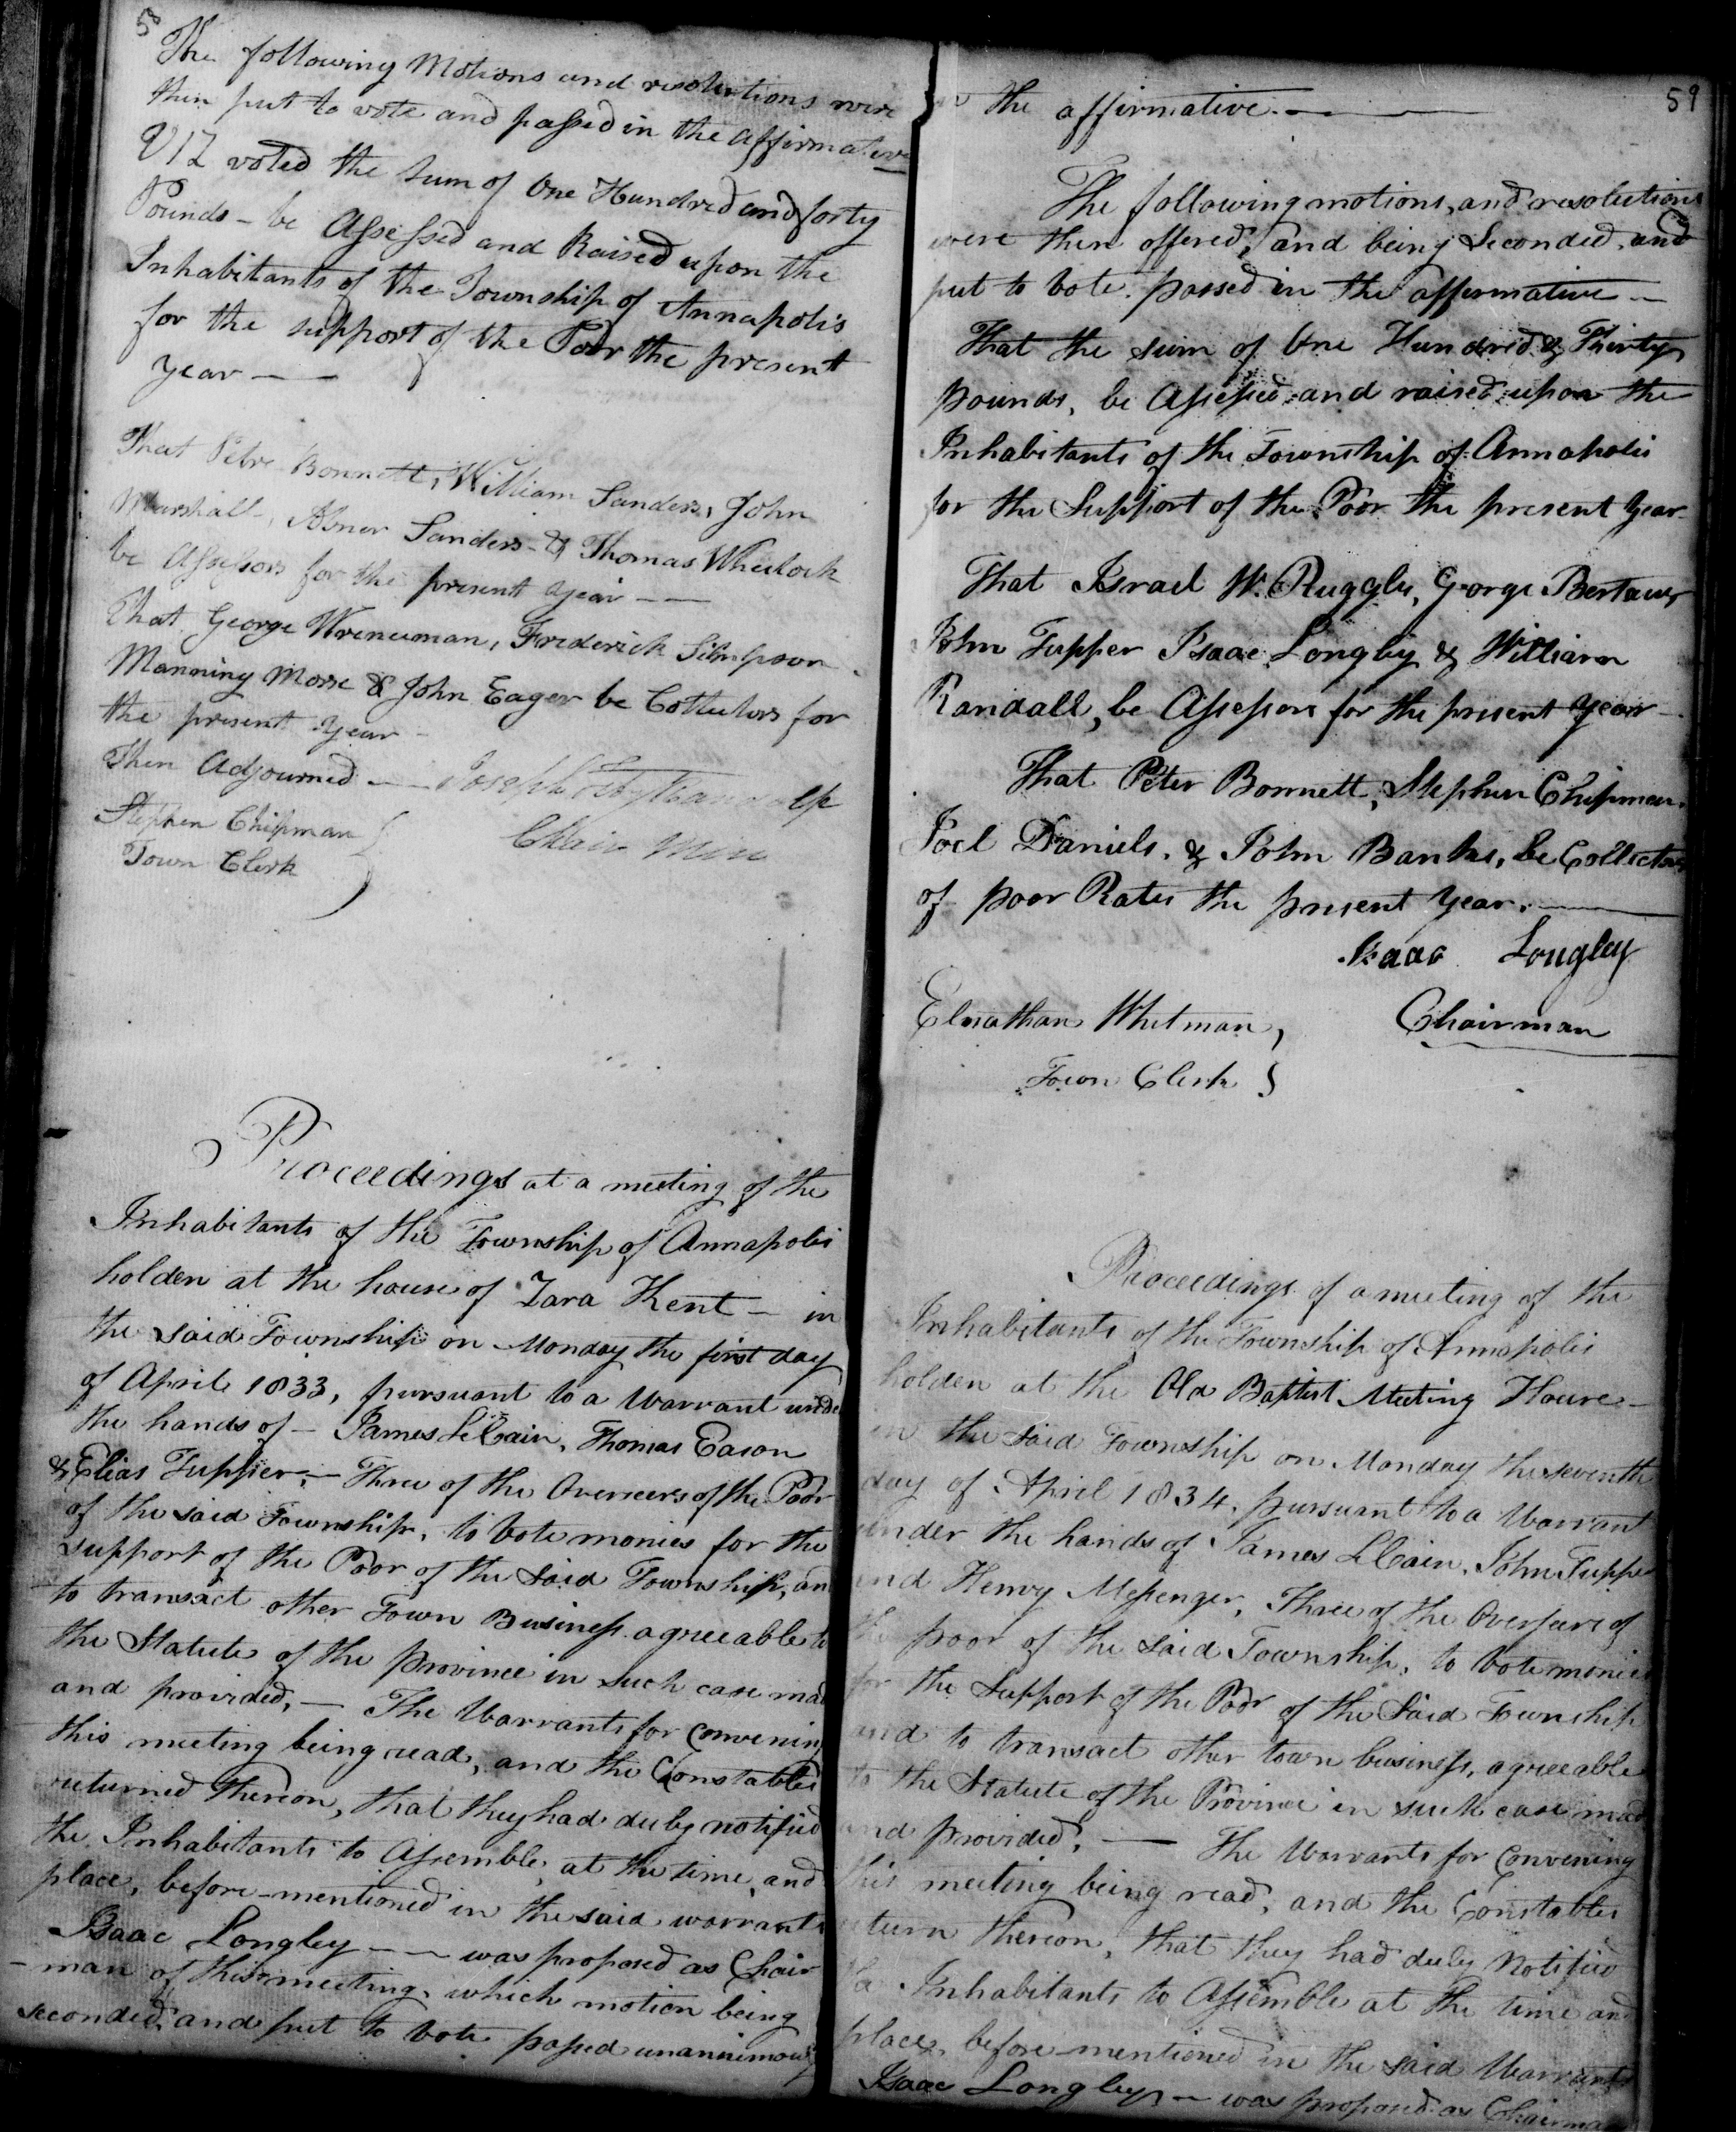 5
The following Motions and resolutions were
then put to vote and passed in the affirmative
VIZ voted the sum of One Hundred and forty
Pounds - be Assessed and Raised upon the
Inhabitants of the Township of Annapolis
for the support of the Poor the present
year —
That Petre Bonnett, William Sanders, John
Marshall, Abner Sanders & Thomas Wheelock
be Assessors for the present year —
That George Wreneman, Frederick Simpson
Manning Morse & John Eager be Collectors for
the present year -
Then Adjourned — Joseph
Stephen Chipman
Chair
Town Clerk
Proceedings at a meeting of the
Inhabitants of the Township of Annapolis
holden at the house of Zara Kent — in
the said Township on Monday the first day
of April 1833, pursuant to a Warrant unde
the hands of — James LeCain, Thomas Eason
& Elias Tupper, — Three of the Overseers of the Poor
of the said Township, to vote monies for the
support of the Poor of the said Township, an
to transact other Town Business agreeable to
the Statute of the province in such case mad
and provided, — The Warrants for convening
this meeting being read, and the Constables
returned thereon, that they had duly notified
the Inhabitants to Assemble, at the time, and
place, before-mentioned in the said warrants
Isaac Longley — — was proposed as Chair
-man of this meeting, which motion being
seconded, and put to vote passed unanimously
59
in the affirmative. —
The following motions, and resolutions
were then offered, and being Seconded, and
put to vote, passed in the affirmative —
That the sum of One Hundred & Thirty
pounds, be Assessed and raised upon the
Inhabitants of the Township of Annapolis
for the Support of the Poor the present year
That Israel W. Ruggles, George Bertaux
John Tupper Isaac Longley & William
Randall, be Assessors for the present year —
That Peter Bonnett, Stephen Chipman,
Joel Daniels, & John Banks, be Collectors
of poor Rates the present year. —
Isaac Longley
Elnathan Whitman,
Chairman
Town Clerk
Proceedings of a meeting of the
Inhabitants of the Township of Annapolis
holden at the Old Baptist Meeting House —
in the said Township on Monday the seventh
day of April 1834, pursuant to a Warrant
under the hands of James LeCain, John Tupper
and Henry Messenger, Three of the Overseers of
the poor of the said Township, to vote monies
for the Support of the Poor of the Said Township
and to transact other town business, agreeable
to the Statute of the Province in such case mad
and provided, — The Warrants for Convening
this meeting being read, and the Constables
return thereon, that they had duly Notified
the Inhabitants to Assemble at the time and
place, before mentioned in the said Warrants
Isaac Longley — was proposed as Chairman